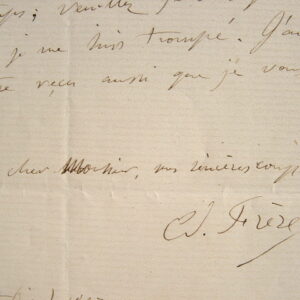 ; veuillez
je me suis trompé. J'au
reçu aussi que je vou
cher Monsieur, mes sincères comp
Ed. Frère